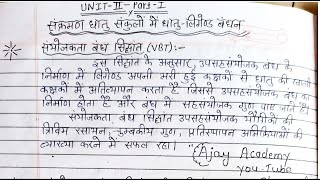 UNIT-II Part-I
संक्रमण धातु संकुलों में धातु-लिगेण्ड बंधन
संयोजकता बंध सिद्धांत (VBT):-
इस सिद्धांत के अनुसार, उपसहसंयोजक बंध के
निर्माण में लिगेण्ड अपनी भरी हुई कक्षकों में धातु की खाली
कक्षकों में अतिव्यापन करता है जिससे उपसहसंयोजक बंध का
निर्माण होता है और बंध में सहसंयोजक गुण पाया जाते हैं।
संयोजकता बंध सिद्धांत उपसहसंयोजक यौगिकों की
त्रिविम रसायन, चुम्बकीय गुण, प्रतिस्थापन अभिक्रियाओं की
व्याख्या करने में सफल रहा।"
Ajay Academy
You-Tube